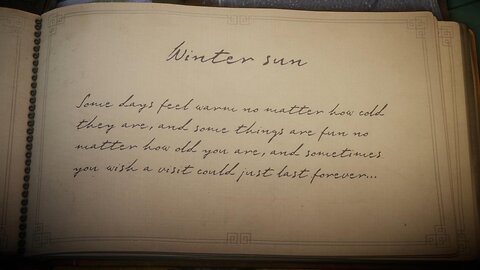 Winter sun
Some days feel warm no matter how cold
they are, and some things are fun no
matter how old you are, and sometimes
you wish a visit could just last forever...